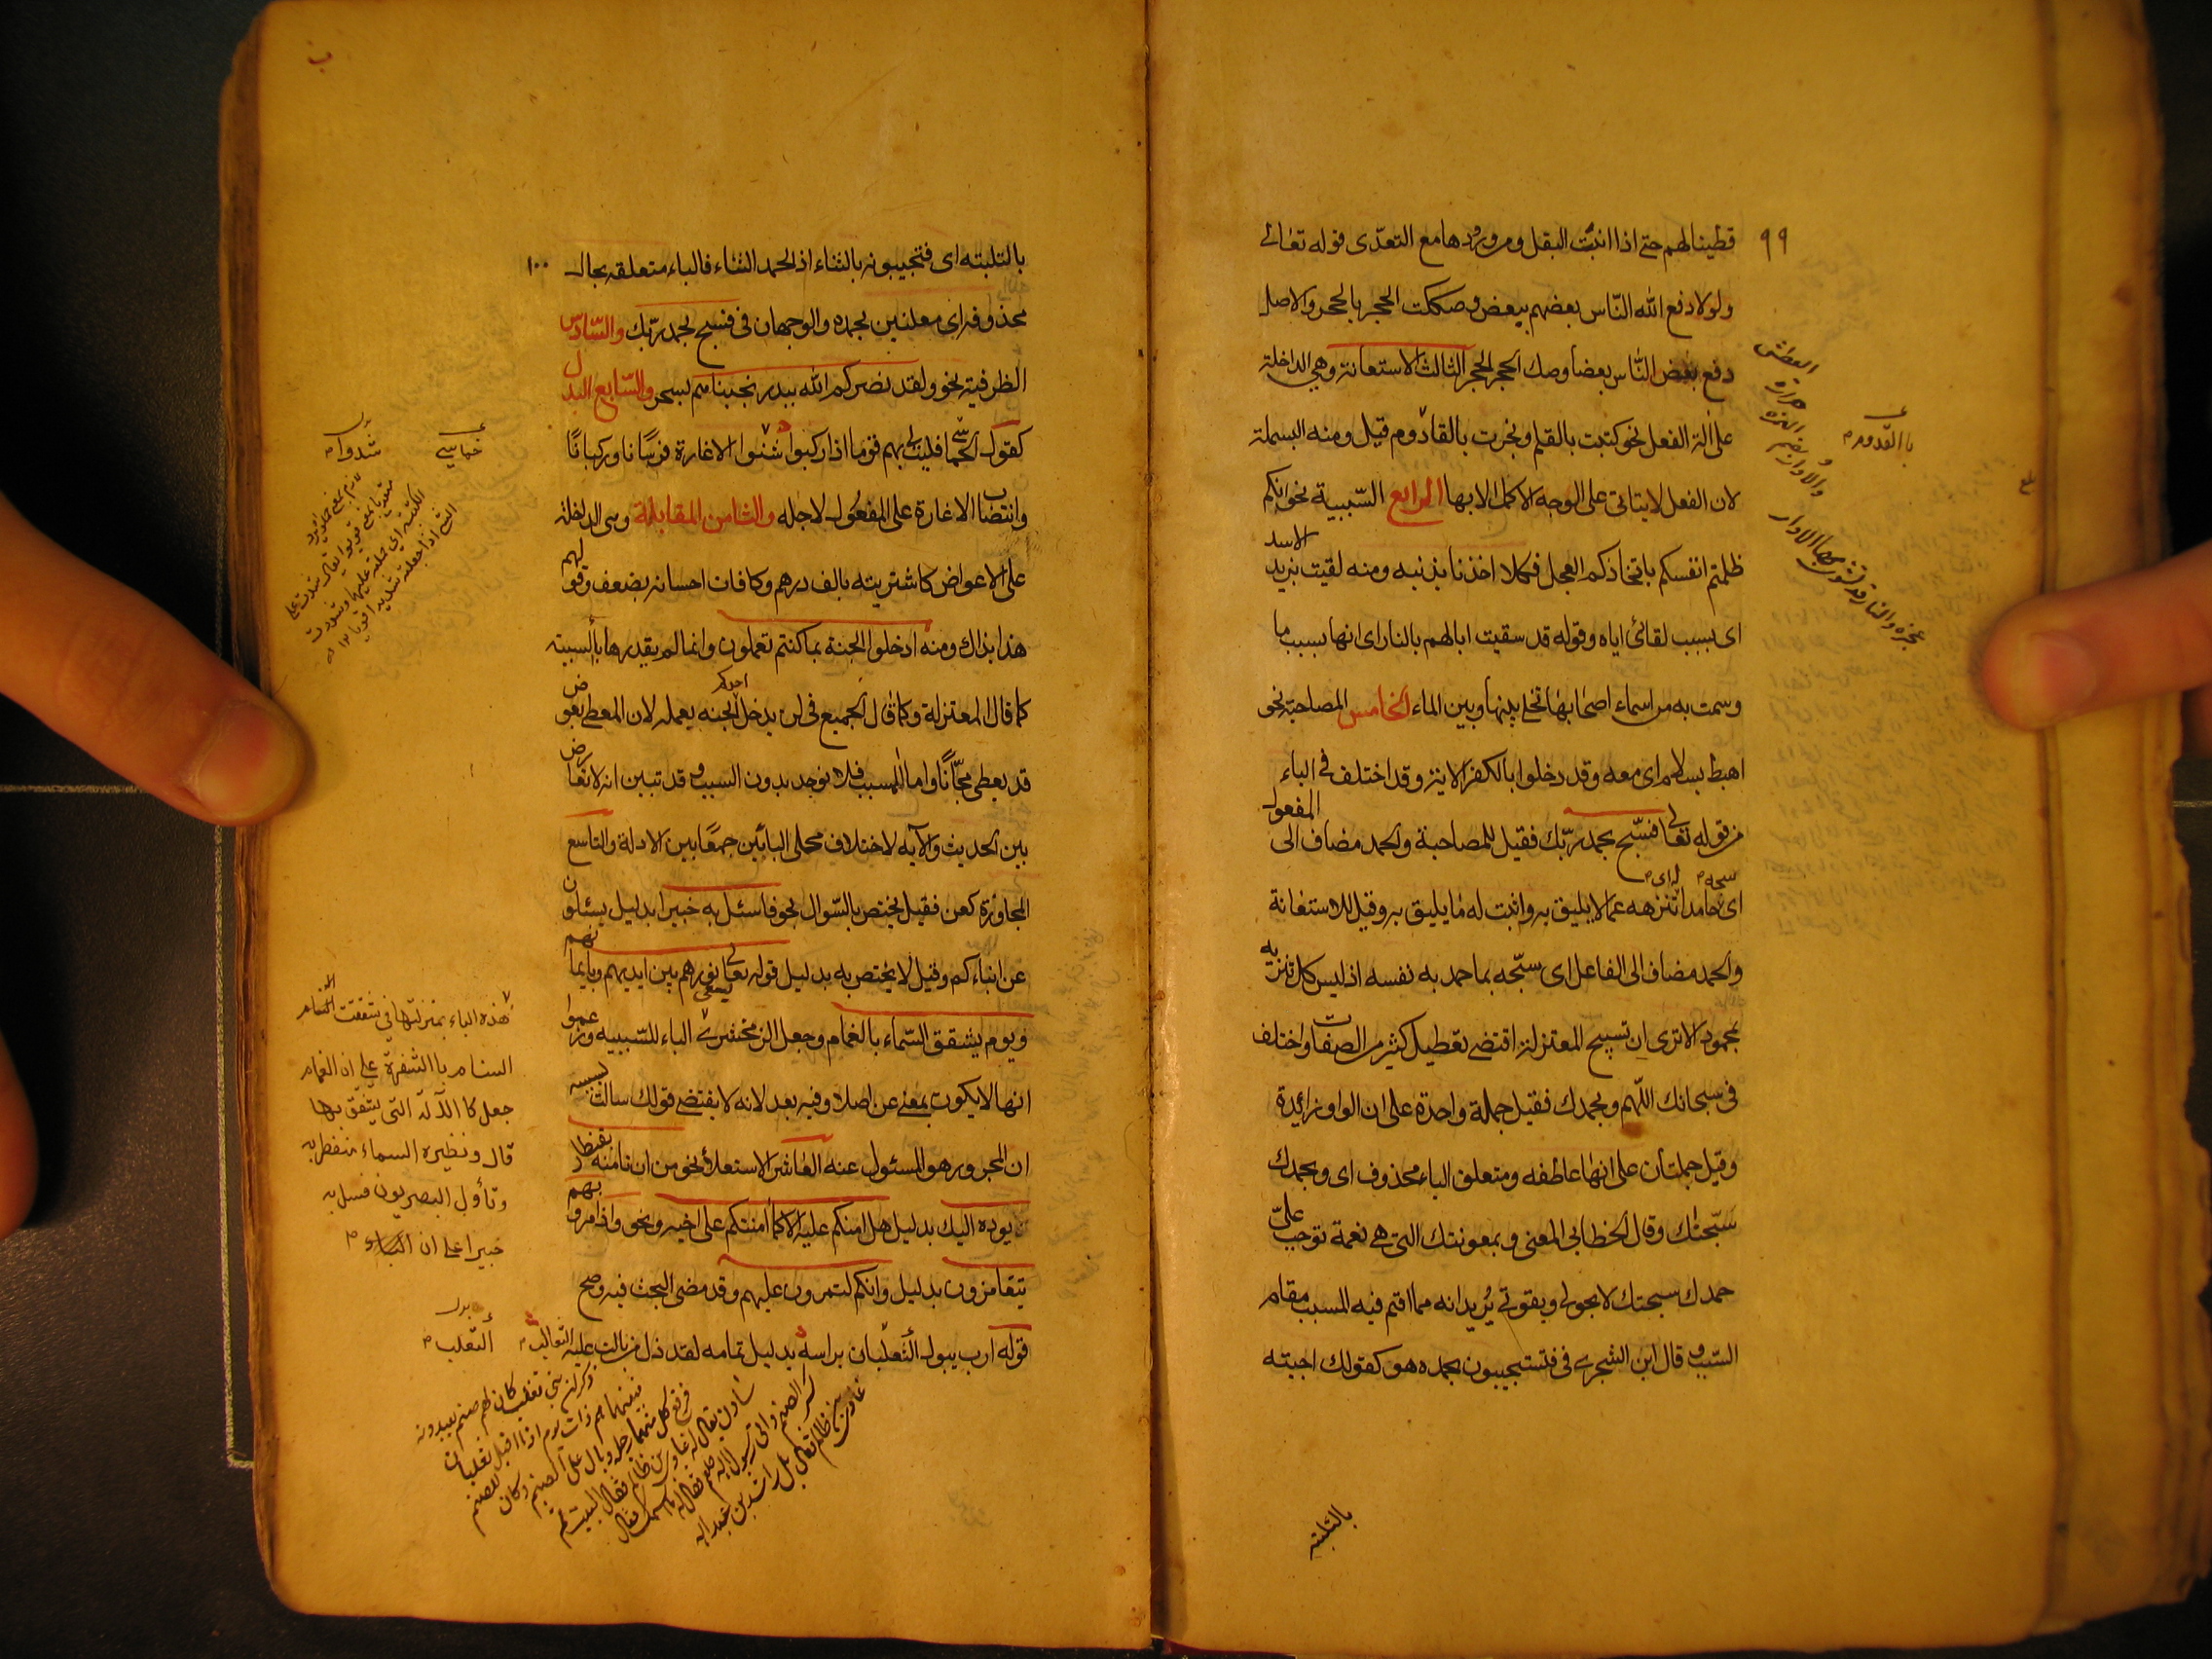 ٩٩
قطينا لهم حتى اذا انبت البقل ومن ورودها مع التعدّى قوله تعالى
ولولا دفع الله النّاس بعضهم ببعض وصككت الحجر بالحجر والاصل
دفع بعض النّاس بعضا وصك الحجر الحجر الثالث الاستعانة وهى الداخلة
على آلة الفعل نحو كتبت بالقلم ونجرت بالقادوم قيل ومنه البسملة
لان الفعل لا يتاتى على الوجه الاكمل الا بها الرابع السّببية نحو انكم
ظلمتم انفسكم باتخاذكم العجل فكلا اخذنا بذنبه ومنه لقيت بزيد الاسد
اى بسبب لقائى اياه وقوله قد سقيت ابالهم بالنار اى انها بسبب ما
وسمت به من اسماء اصحابها تخلى بينها وبين الماء الخامس المصاحبة نحو
اهبط بسلام اى معه وقد دخلوا بالكفر الاية وقد اختلف فى الباء
من قوله تعالى فسبّح بحمد ربّك فقيل للمصاحبة والحمد مضاف الى المفعول
اى سبحه حامدا له اى تنزهه عما لا يليق به واثبت له ما يليق به وقيل للاستعانة
والحمد مضاف الى الفاعل اى سبّحه بما حمد به نفسه اذ ليس كل تنزيه
بمحمود الا ترى ان تسبيح المعتزلة اقتضى تعطيل كثير من الصفات واختلف
فى سبحانك اللّهم وبحمدك فقيل جملة واحدة على ان الواو زائدة
وقيل جملتان على انها عاطفه ومتعلق الباء محذوف اى وبحمدك
سبّحتك وقال الخطابى المعنى وبمعونتك التى هى نعمة توجب علىّ
حمدك سبحتك لا بحولى وبقوتى يُريد انه مما اقيم فيه المسبب مقام
السّبب وقال ابن الشجرى فى فتستجيبون بحمده هو كقولك اجبته
بالتلبته
باالقدوم
١٠٠
بالتلبته اى فتجيبونه بالثناء اذ الحمد الثناء فالباء متعلقه بحال
محذوفه اى معلنين بحمده والوجهان فى فسبح بحمد ربّك والسّادس
الظرفية نحو ولقد نصركم الله ببدر نجيناهم بسحر والسّابع البدل
كقول الحماسى فليت لى بهم قوما اذا ركبوا شنوا الاغارة فرسانا وركبانًا
وانتصاب الاغارة على المفعول لاجله والثامن المقابلة وهى الداخلة
على الاعواض كاشتريته بالف درهم وكافات احسانه بضعف وقولهم
هذا بذاك ومنه ادخلوا الجنة بما كنتم تعملون وانما لم يقدرها بالسببية
كما قال المعتزلة وكما قال الجميع فى لن يدخل احدكم الجنه بعمله لان المعطى بعوض
قد يعطى مجّانًا واما المسبب فلا يوجد بدون السبب وقد تبين انه لا تعارض
بين الحديث والآيه لاختلاف محملى البائين جمعًا بين الادلة والتاسع
المجاوزة كعن فقيل يختص بالسّوال نحو فاسئل به خبيرا بدليل يسئلون
عن انبائكم وقيل لا يختص به بدليل قوله تعالى يسعى نورهم بين ايديهم وبايمانهم
ويوم يشقق السّماء بالغمام وجعل الزمخشرى الباء للسّببيه وزعموا
انها لا يكون بمعنى عن اصلا وفيه بعد لانه لا يقتضى قولك سالت بسببه
ان المجرور هو المسئول عنه العاشر الاستعلا نحو من ان تامنه بقنطار
يوده اليك بدليل هل امنكم عليه الا كما امنتكم على اخيه ونحو واذا مروا بهم
يتغامزون بدليل وانكم لتمرون عليهم وقد مضى البحث فيه وضح
قوله ارب يبول الثعلبان براسه بدليل تمامه لقد ذل من بالت عليه الثعالب
هذه الباء بمنزلتها فى شققت
السنام باالشفرة على ان الغمام
جعل كا الآلة التى يتفق بها
قال ونظيره السماء منفطر به
وتأول البصريون فسل به
خبيرا على ان الباء
الثعلب
ذكر ان بنى تغلب كان لهم صنم يعبدونه
فبينما هم ذات يوم اذا اقبل ثعلبان
فرفع كل منهما رجله وبال على الصنم وكان للصنم
سادن يقال له غاوى بن ظالم فقال البيت
كسر الصنم واتى رسول الله صلعم فقال له ما اسمك فقال
غاوى بن ظالم فقال بل راشد بن عبد الله